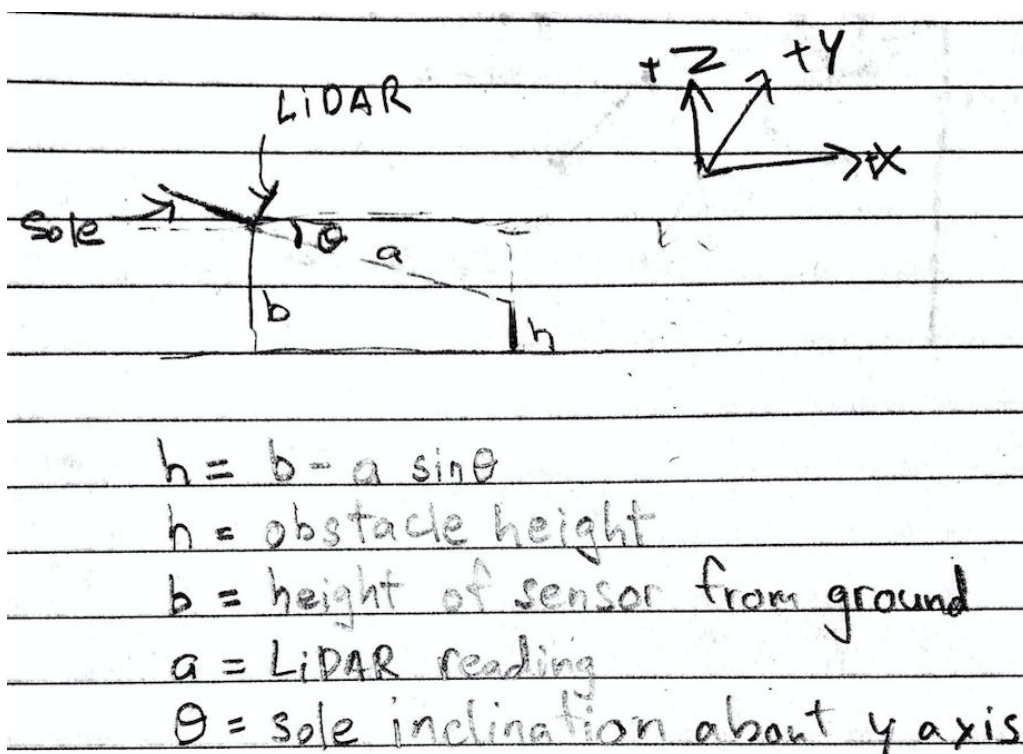 +Z +Y
LiDAR
+X
Sole
θ
a
b
h
h = b - a sinθ
h = obstacle height
b = height of sensor from ground
a = LiDAR reading
θ = sole inclination about y axis